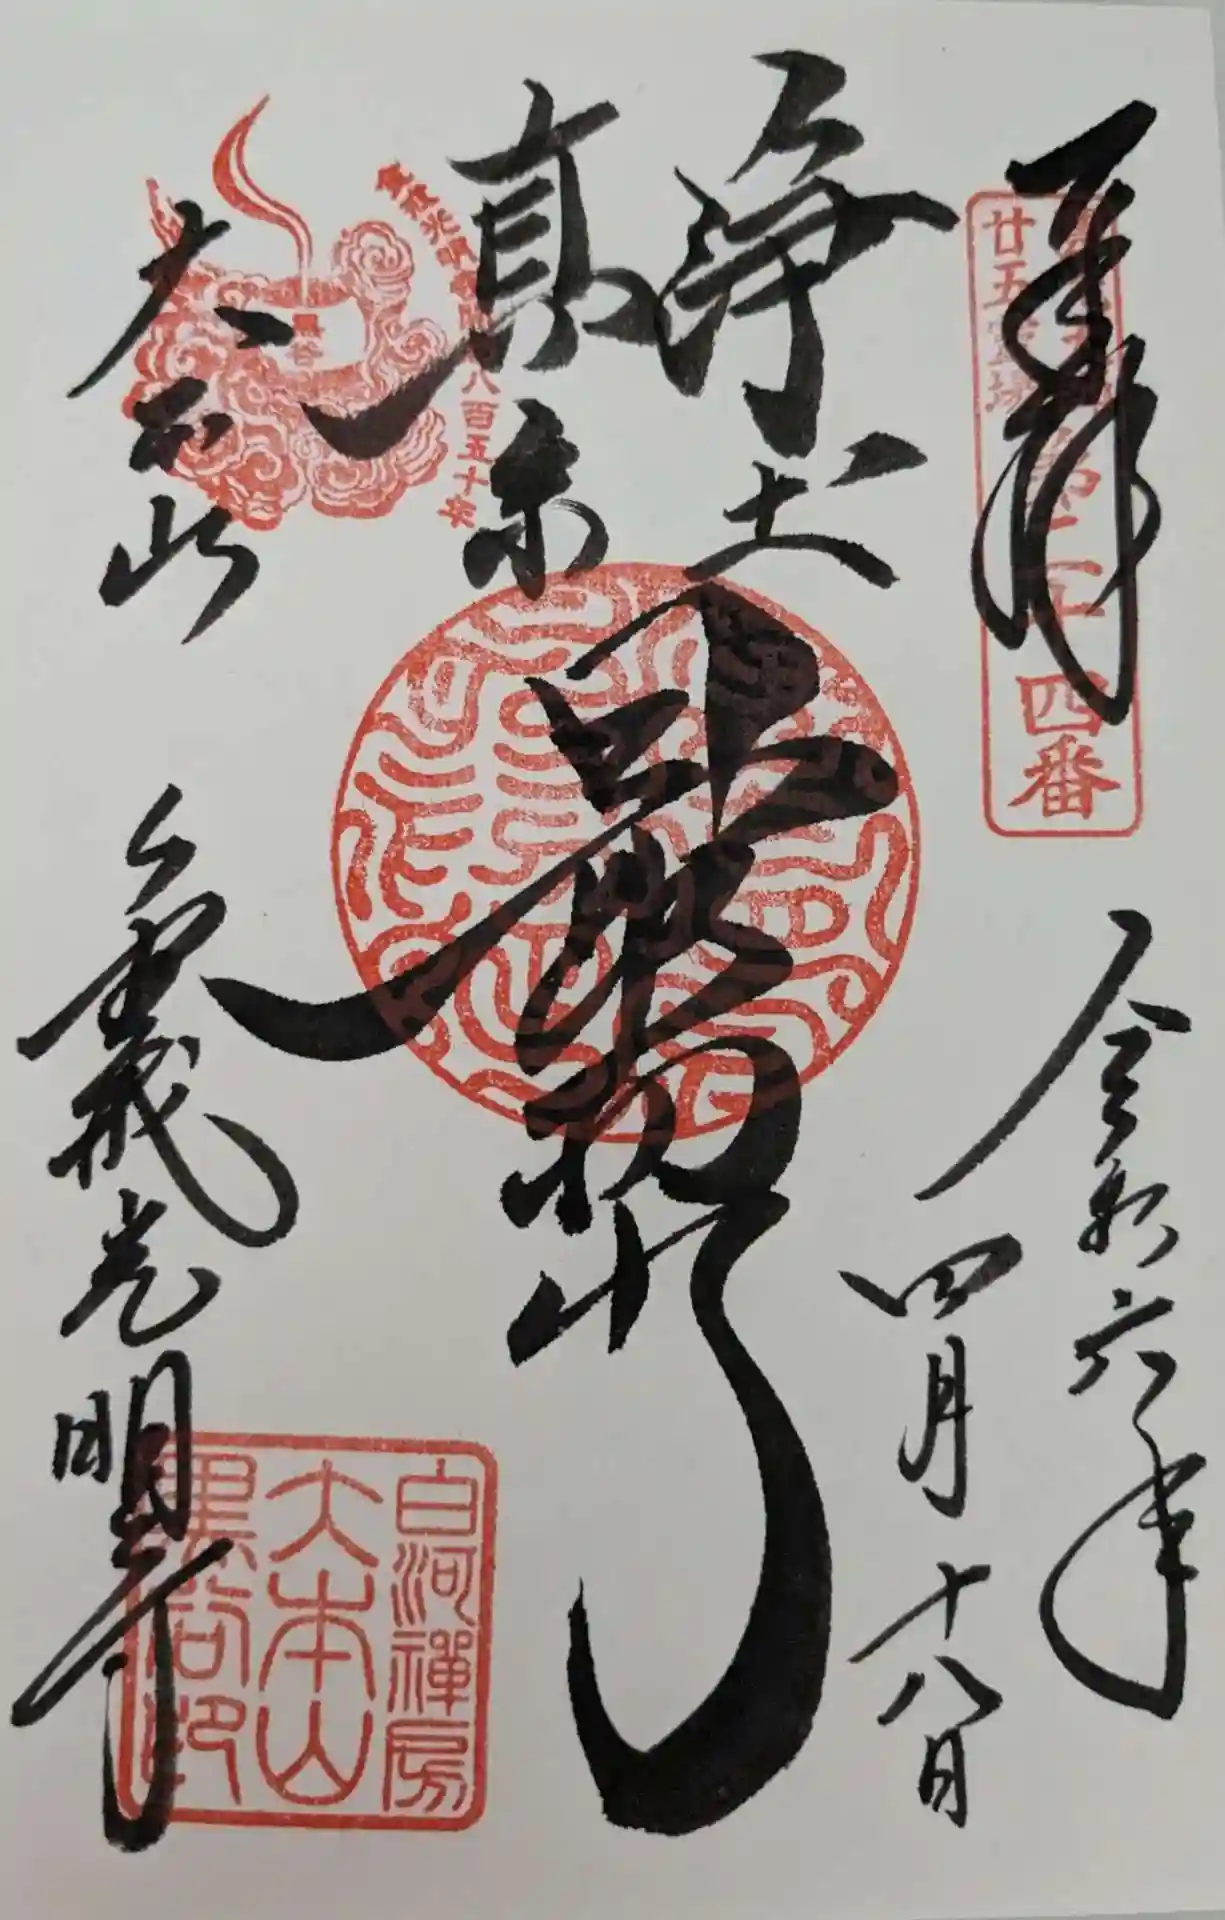 奉拝
廿五霊場
第二十四番
令和六年
四月十八日
浄土
真宗
最初門
八百五十年
黒谷
大本山
金戒光明寺
白河禪房
大本山
黒谷印